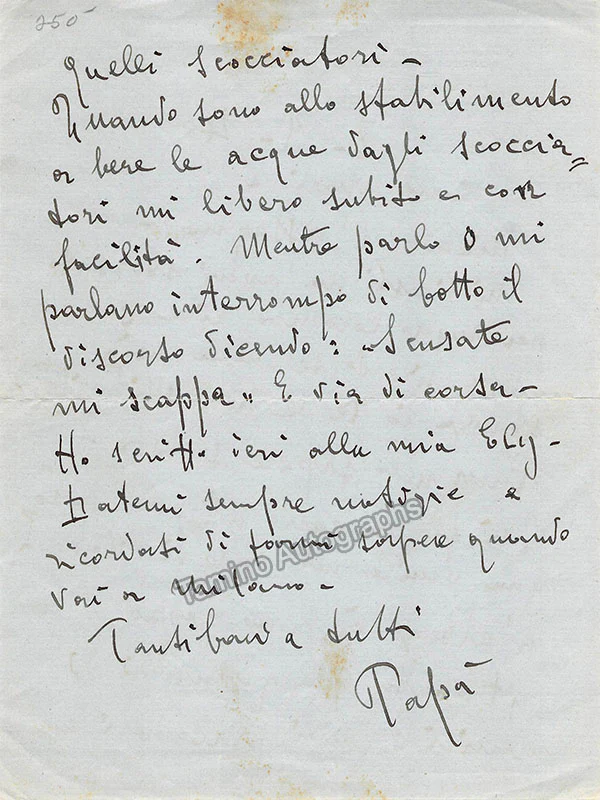 250
quelli scocciatori -
Quando sono allo stabilimento
a bere le acque dagli scoccia=
tori mi libero subito e con
facilità. Mentre parlo o mi
parlano interrompo di botto il
discorso dicendo: "Scusate
mi scappa" E via di corsa -
Ho scritto ieri alla mia Ely -
Datemi sempre notizie e
ricordati di farmi sapere quando
vai a Milano -
Tanti baci a tutti
Papà
Tamino Autographs